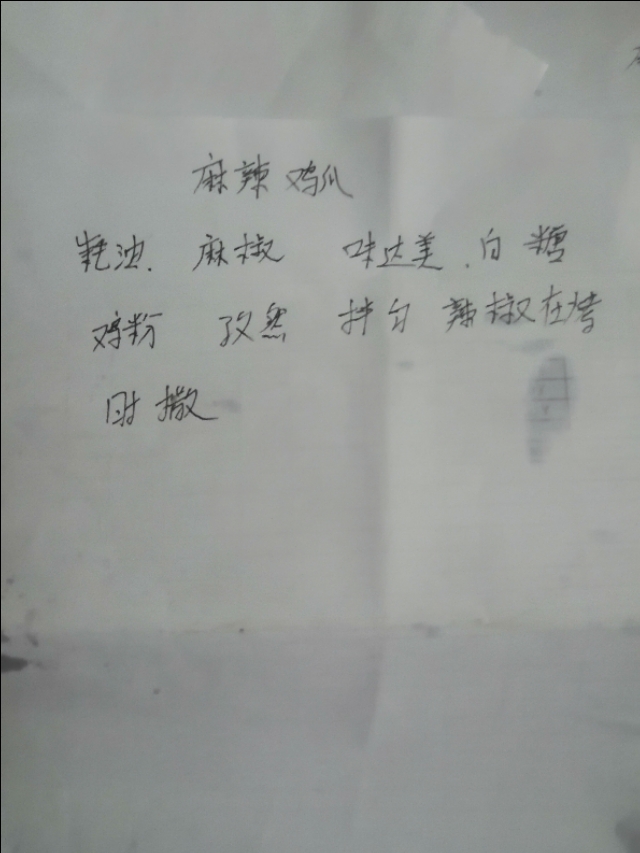 麻辣鸡爪
耗油、麻椒 味达美、白糖
鸡粉 孜然 拌匀 辣椒在烤
时撒